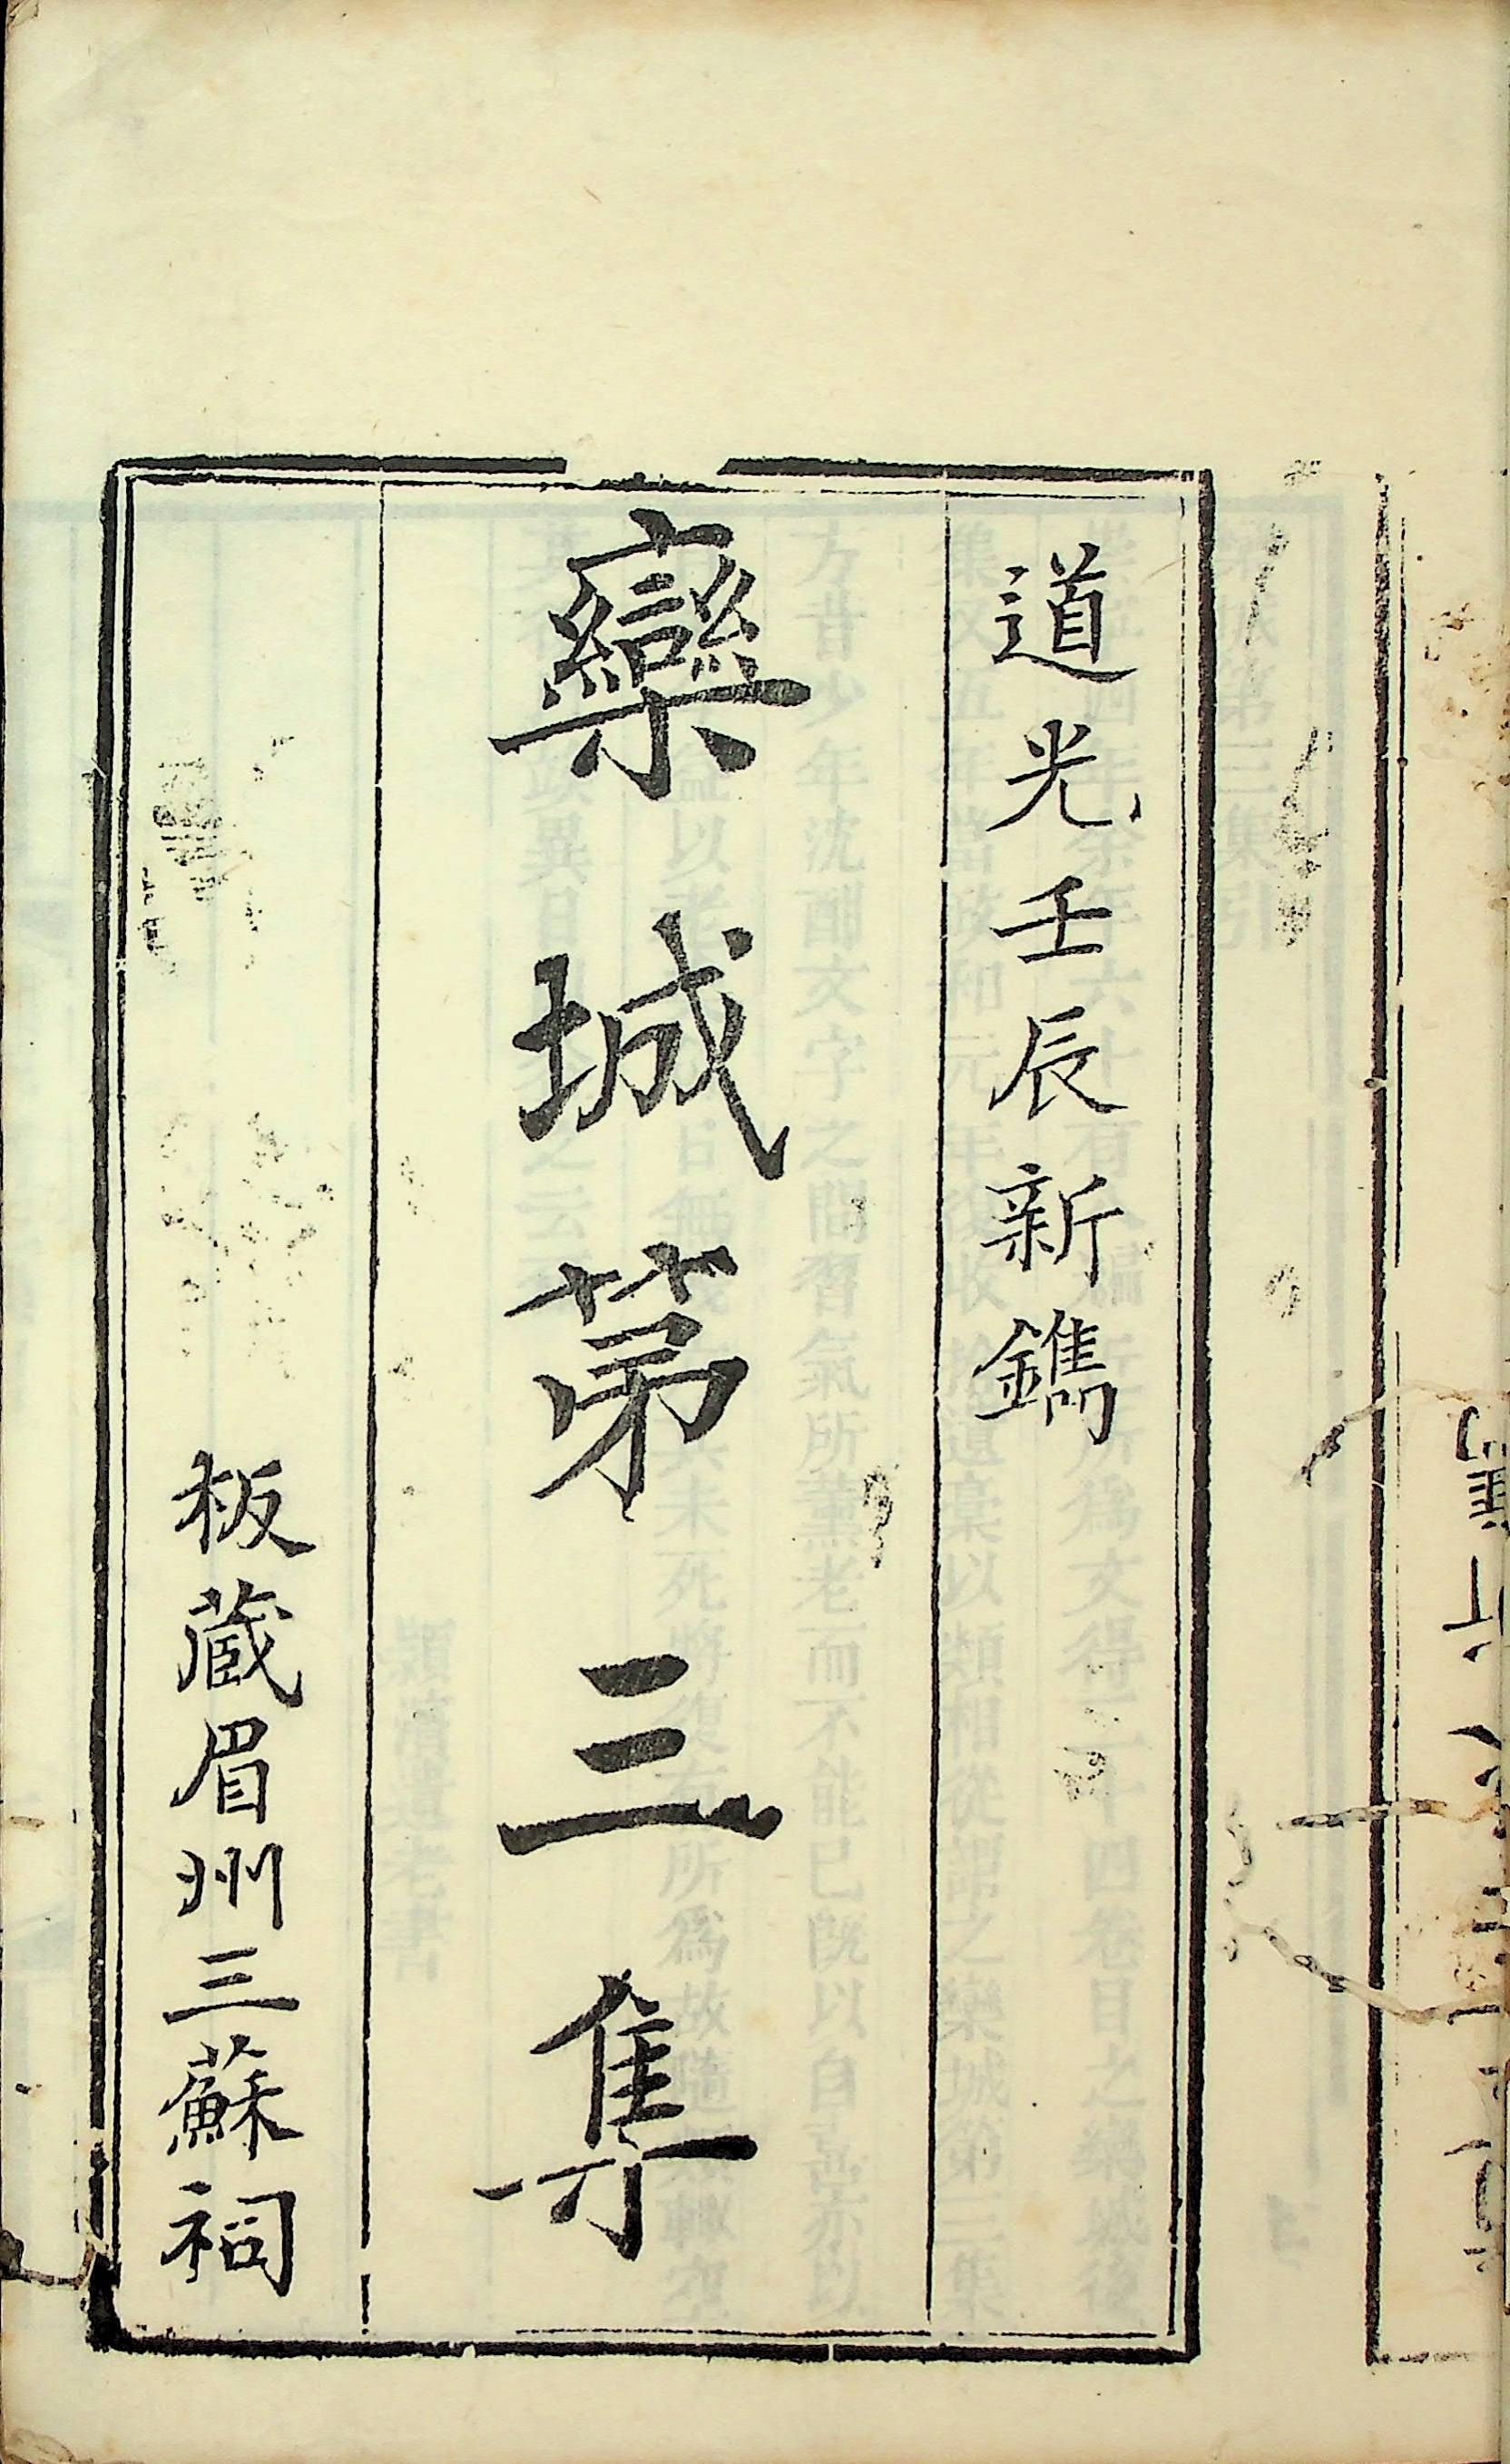 道光壬辰新鐫
欒城苐三集
板蔵眉州三蘇祠